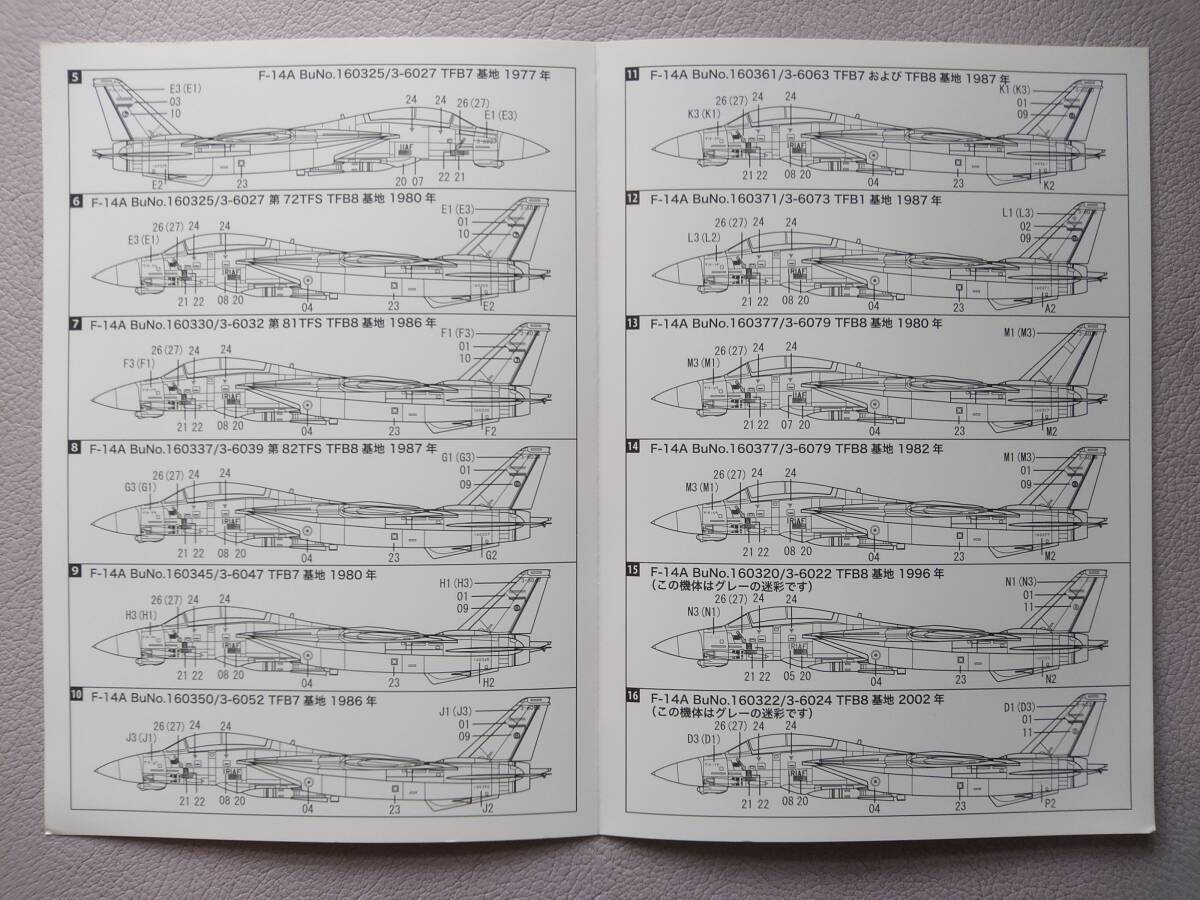 5 F-14A BuNo.160325/3-6027 TFB7 基地 1977 年
E3 (E1)
03
10
24 24 26 (27)
E1 (E3)
IIAF
E2 23 20 07 22 21
6 F-14A BuNo.160325/3-6027 第 72TFS TFB8 基地 1980 年
E1 (E3)
01
10
26 (27) 24 24
E3 (E1)
IRIAF
21 22 08 20 04 23 E2
7 F-14A BuNo.160330/3-6032 第 81TFS TFB8 基地 1986 年
F1 (F3)
01
10
26 (27) 24 24
F3 (F1)
IRIAF
21 22 08 20 04 23 F2
8 F-14A BuNo.160337/3-6039 第 82TFS TFB8 基地 1987 年
G1 (G3)
01
09
26 (27) 24 24
G3 (G1)
IRIAF
21 22 08 20 04 23 G2
9 F-14A BuNo.160345/3-6047 TFB7 基地 1980 年
H1 (H3)
01
09
26 (27) 24 24
H3 (H1)
IRIAF
21 22 08 20 04 23 H2
10 F-14A BuNo.160350/3-6052 TFB7 基地 1986 年
J1 (J3)
01
09
26 (27) 24 24
J3 (J1)
IRIAF
21 22 08 20 04 23 J2
11 F-14A BuNo.160361/3-6063 TFB7 および TFB8 基地 1987 年
K1 (K3)
01
09
26 (27) 24 24
K3 (K1)
IRIAF
21 22 08 20 04 23 K2
12 F-14A BuNo.160371/3-6073 TFB1 基地 1987 年
L1 (L3)
02
09
26 (27) 24 24
L3 (L2)
IRIAF
21 22 08 20 04 23 A2
13 F-14A BuNo.160377/3-6079 TFB8 基地 1980 年
M1 (M3)
26 (27) 24 24
M3 (M1)
IIAF
21 22 07 20 04 23 M2
14 F-14A BuNo.160377/3-6079 TFB8 基地 1982 年
M1 (M3)
01
09
26 (27) 24 24
M3 (M1)
IRIAF
21 22 08 20 04 23 M2
15 F-14A BuNo.160320/3-6022 TFB8 基地 1996 年
(この機体はグレーの迷彩です)
N1 (N3)
01
11
26 (27) 24 24
N3 (N1)
IRIAF
21 22 05 20 04 23 N2
16 F-14A BuNo.160322/3-6024 TFB8 基地 2002 年
(この機体はグレーの迷彩です)
D1 (D3)
01
11
26 (27) 24 24
D3 (D1)
IRIAF
21 22 08 20 04 23 P2